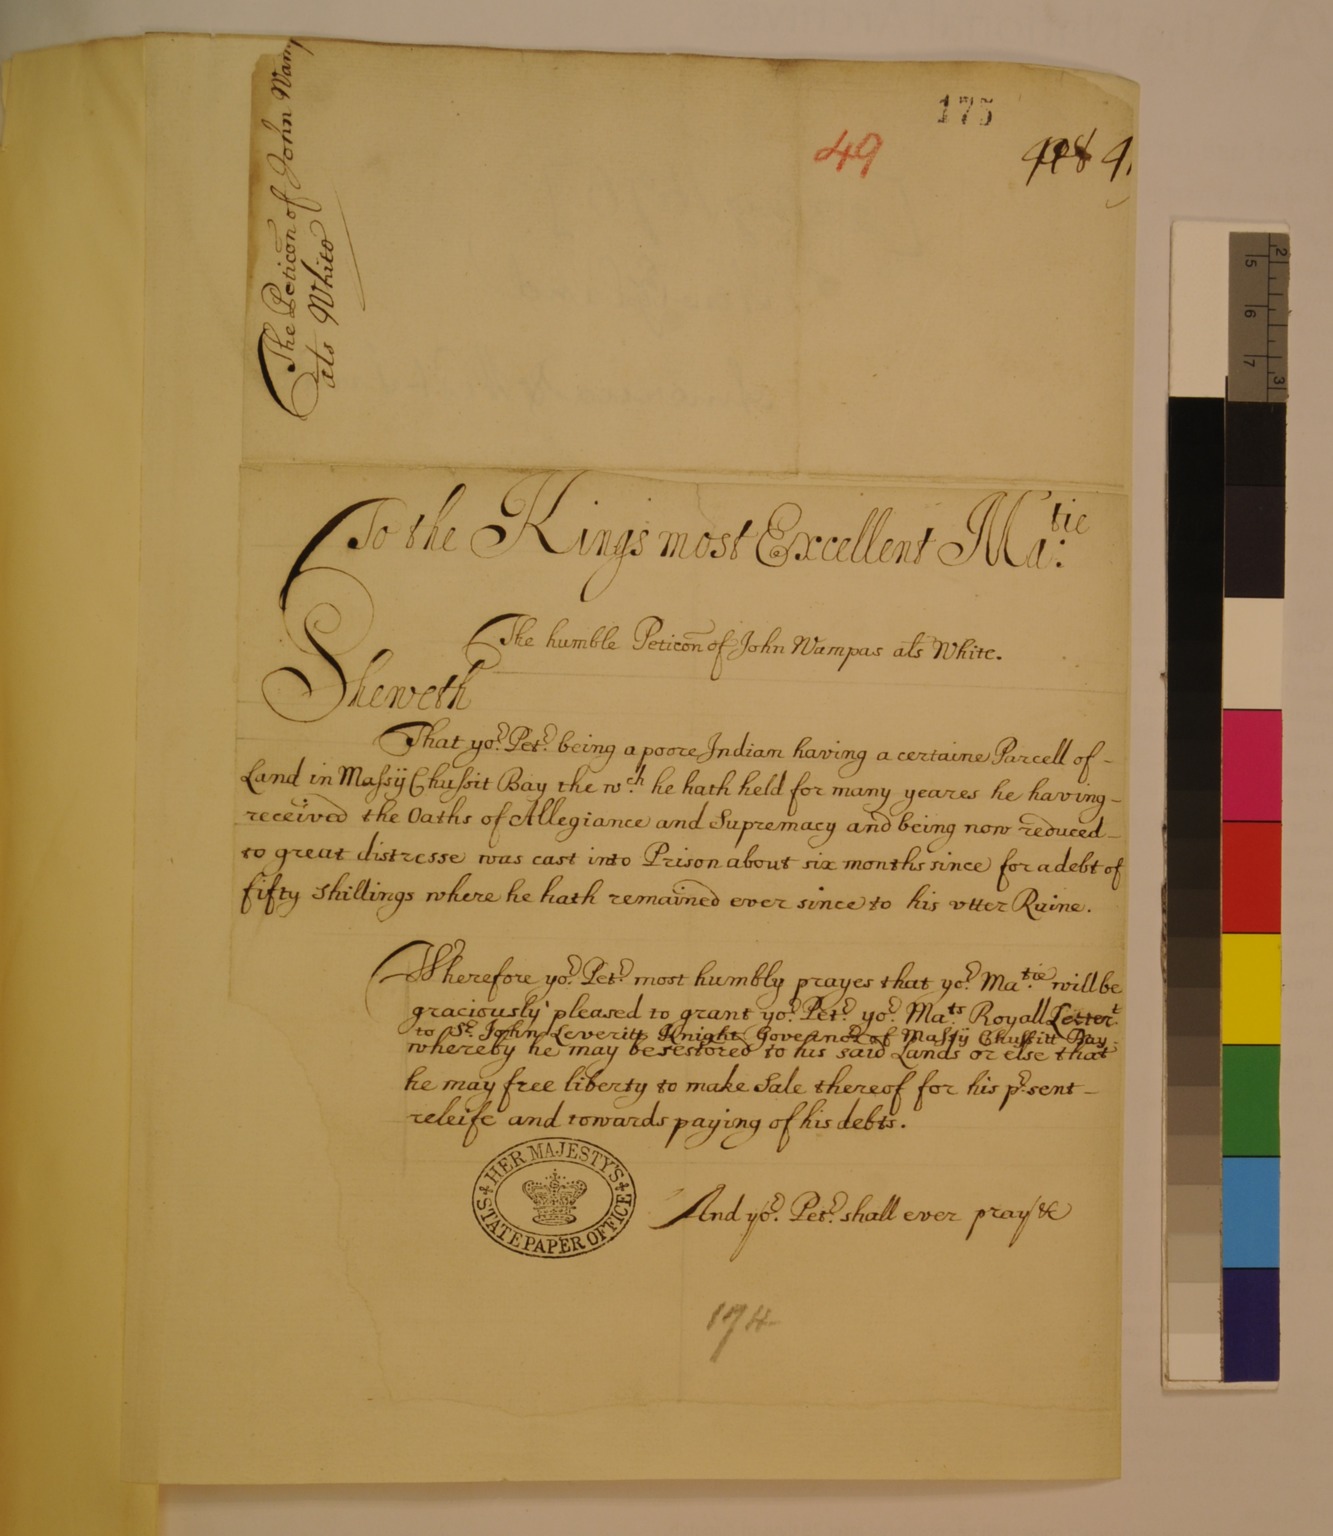 The Peticon of John Wamp
als White
175
49
To the Kings most Excellent Ma:tie
The humble Peticon of John Wampas als White.
Sheweth
That yor. Petr. being a poore Indian having a certaine Parcell of -
Land in Massij Chussit Bay the wch. he hath held for many yeares he having -
received the Oaths of Allegiance and Supremacy and being now reduced -
to great distresse was cast into Prison about six months since for a debt of
fifty shillings where he hath remained ever since to his vtter Ruine.
Wherefore yor. Petr. most humbly prayes that yor. Ma.tie will be
graciously pleased to grant yor. Petr. yor. Ma.ts Royall Letter
to Sr. John Leveritt Knight Governor of Massij Chussitt Bay
whereby he may be restored to his said Lands or else that
he may free liberty to make Sale thereof for his p.sent -
releife and towards paying of his debts.
HER MAJESTY'S STATE PAPER OFFICE
And yor. Petr. shall ever pray &c
174
2
5
6
7
3